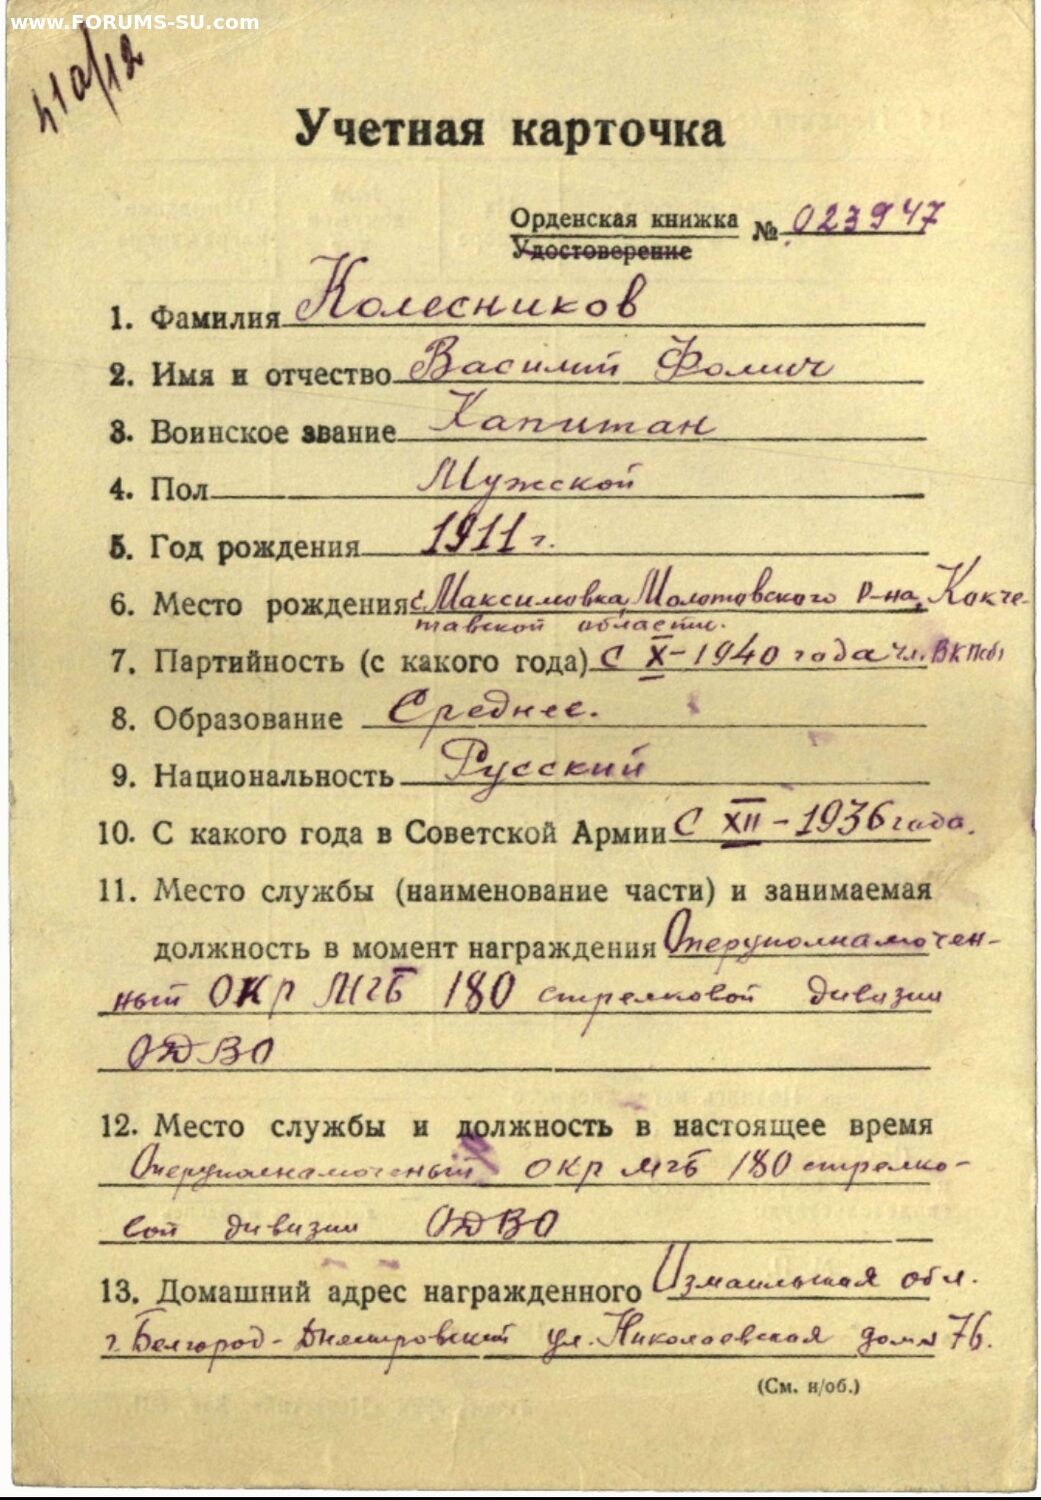 www.FORUMS-SU.com
Учетная карточка
Орденская книжка № 023947
Удостоверение
1. Фамилия Колесников
2. Имя и отчество Василий Фомич
3. Воинское звание Капитан
4. Пол Мужской
5. Год рождения 1911 г.
6. Место рождения с. Максимовка Молотовского р-на, Кокче-
тавской области.
7. Партийность (с какого года) С X-1940 года чл. ВКП(б)
8. Образование Среднее.
9. Национальность Русский
10. С какого года в Советской Армии С XII-1936 года.
11. Место службы (наименование части) и занимаемая
должность в момент награждения Оперуполномочен-
ный ОКР МГБ 180 стрелковой дивизии
ОДВО
12. Место службы и должность в настоящее время
Оперуполномоченый ОКР МГБ 180 стрелко-
вой дивизии ОДВО
13. Домашний адрес награжденного Измаильская обл.
г. Белгород-Днестровский ул. Николаевская дом № 76.
(См. н/об.)